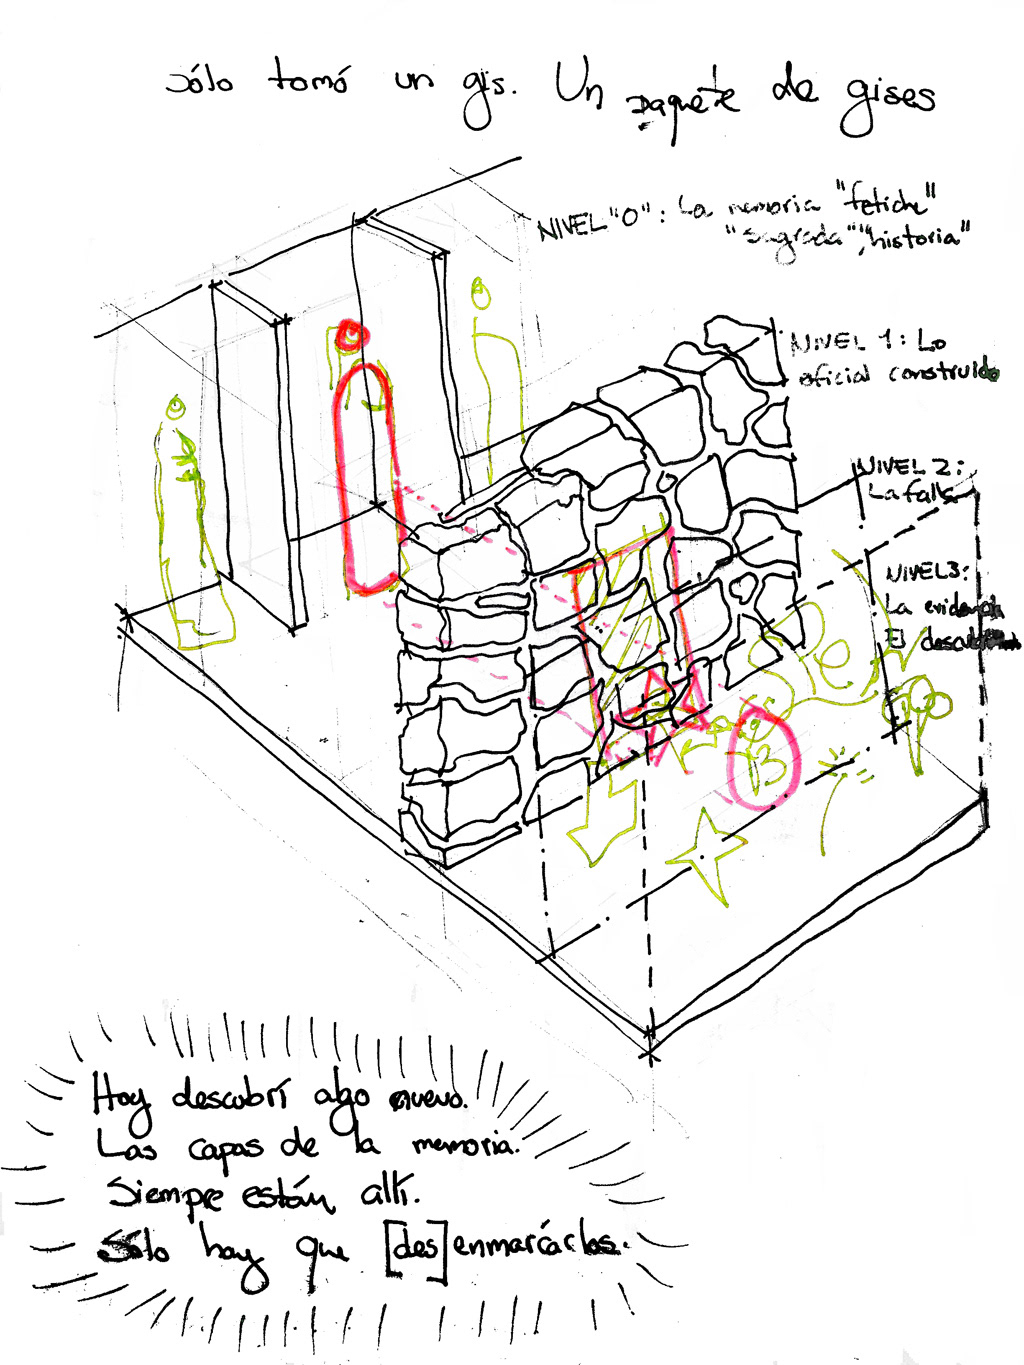 sólo tomó un gis. Un paquete de gises
NIVEL "0": La memoria "fetiche"
"sagrada", "historia"
NIVEL 1: Lo
oficial construido
NIVEL 2:
La falla
NIVEL 3:
La evidencia
El
Hoy descubrí algo nuevo.
Las capas de la memoria.
Siempre están allí.
Sólo hay que [des]enmarcarlas.